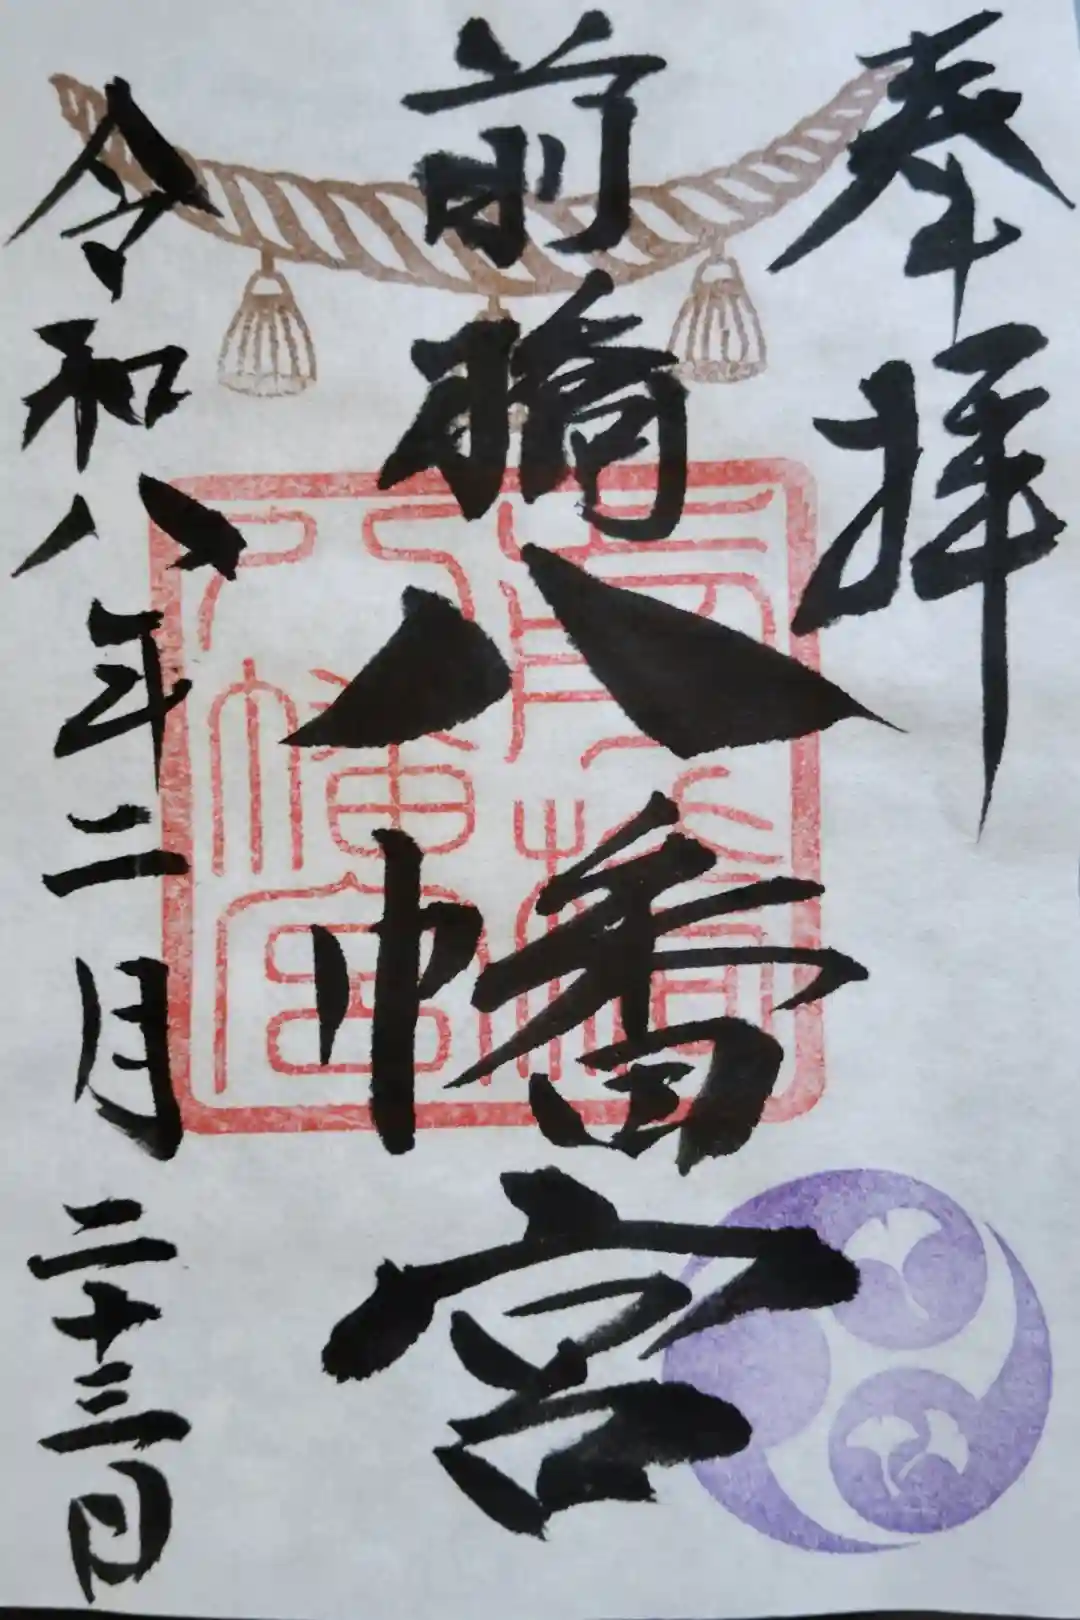 奉拝
前橋八幡宮
令和八年二月二十三日
前橋
八幡宮